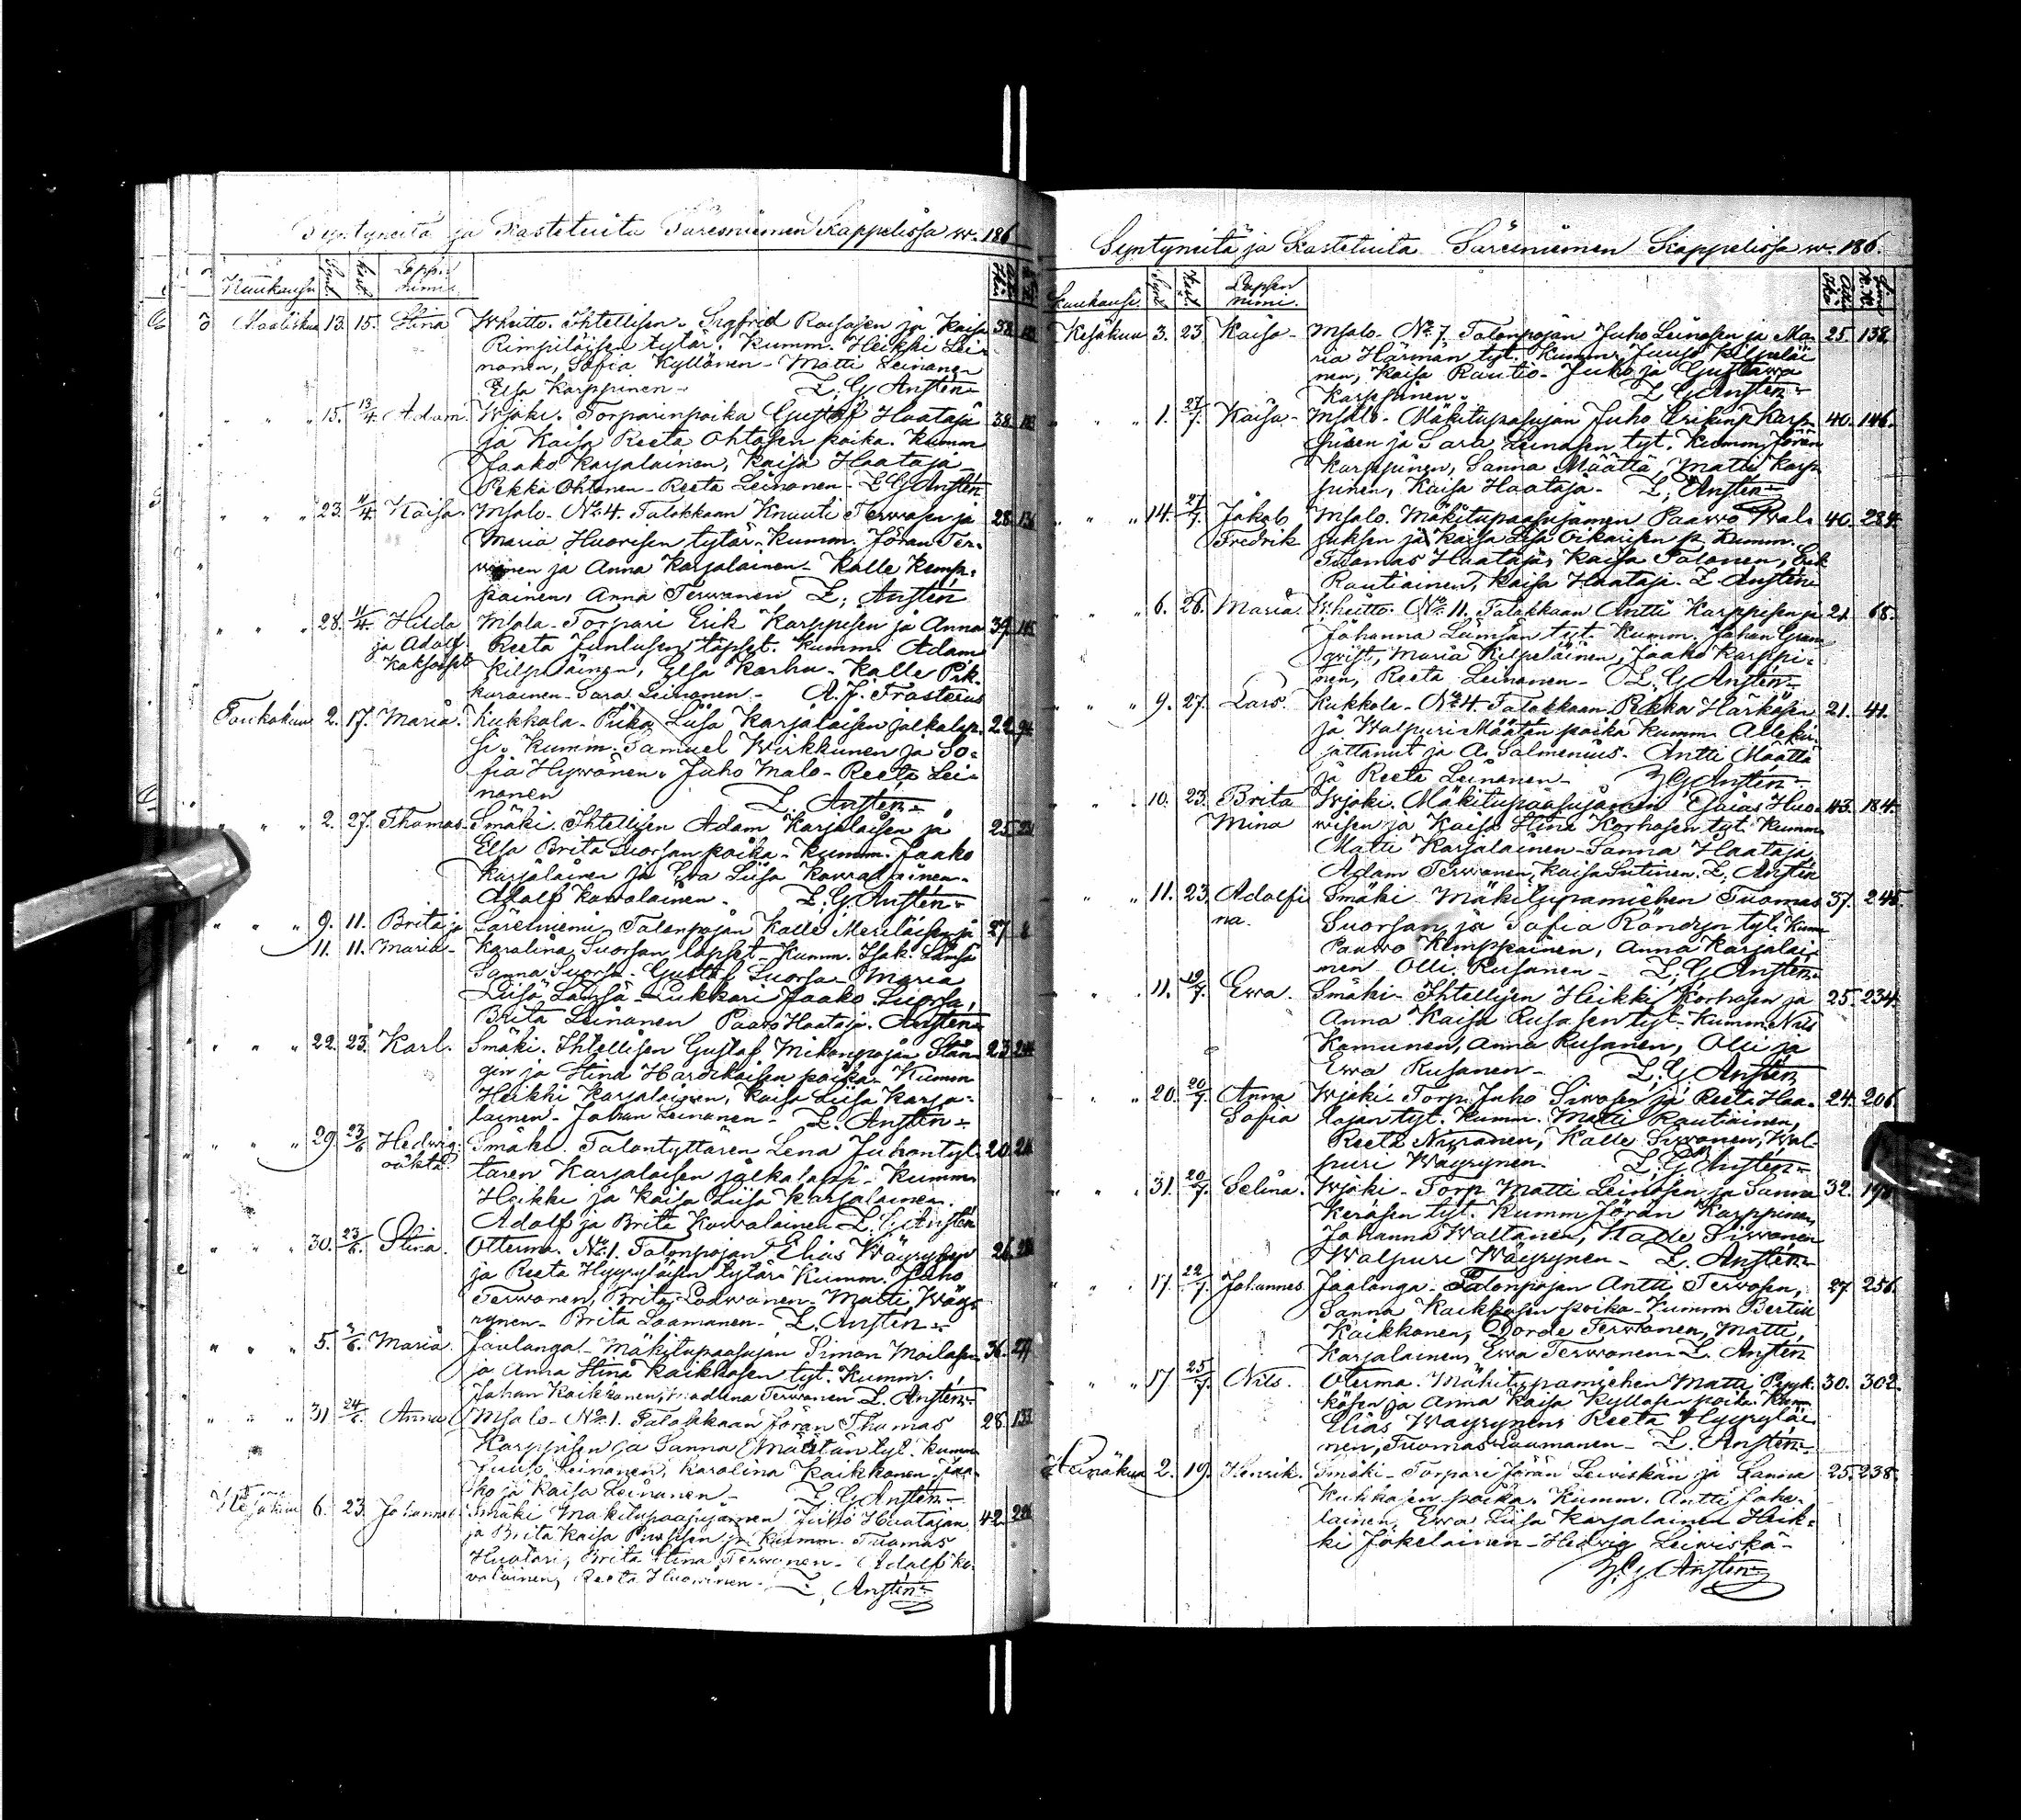 Syntyneitä ja Kastetuita Säresniemen Kappelissa w. 186
Kuukausi Synt. Kast. Lapsen nimi.
Maaliskuu 13. 15. Stina Wheitto. Ihtellisen Sigfrid Rusasen ja Kaisa 38.
Rimpiläisen tytär. Kumm. Heikki Lei-
nonen, Sofia Kyllönen - Matti Leinanen
Elsa Karppinen - Z. G. Anstén
" " 15. 13/4 Adam. Wjoki. Torparinpoika Gustaf Haataja 38.
ja Kaisa Reeta Ohtosen poika. Kumm
Jaako Karjalainen, Kaisa Haataja
Pekka Ohtonen - Reeta Leinonen - Z G Anstén
" " 23. 11/4 Kaisa. Msalo. No. 4. Talokkaan Knuuti Terwosen ja 28.
Maria Huowisen tytär. Kumm. Jöran Ter-
wonen ja Anna Karjalainen - Kalle Kemp-
painen, Anna Terwonen Z. Anstén
" " 28. 11/4 Hilda Msala - Torpari Erik Karppisen ja Anna 39.
ja Adolf Reeta Juntusen lapset. Kumm. Adam
Kaksoset Kilpeläinen, Elsa Karhu - Kalle Pik-
karainen - Sara Leinonen - A. J. Frosterus
Toukokuu 2. 17. Maria. Kukkola - Piika Liisa Karjalaisen jalkalap- 22.
si. Kumm. Samuel Wirkkunen ja So-
fia Hywönen. Juho Malo - Reeta Lei-
nonen Z. Anstén
" " 2. 27. Thomas. Smäki. Ihtellisen Adam Karjalaisen ja 25
Elsa Brita Suorsan poika - Kumm. Jaako
Karjalainen ja Ewa Liisa Kowalainen.
Adolf Kowalainen. Z. G. Anstén
" " 9. 11. Brita ja Säresniemi Talonpojan Kalle Meriläisen ja 27
11. 11. Maria - Karolina Suorsan lapset - Kumm. Isak Lämsä
Sanna Suorsa. Gustaf Suorsa - Maria
Liisa Lämsä - Lukkari Jaako Suorsa,
Brita Leinonen Paawo Haataja. Anstén
" " 22. 23. Karl. Smäki. Ihtellisen Gustaf Mikonpojan Stån- 23
gin ja Stina Hardikaisen poika - Kumm
Heikki Karjalainen, Kaisa Liisa Karja-
lainen. Johan Leinonen - Z. Anstén
" " 29. 23/6 Hedwig Smäki. Talontyttären Lena Juhontyt- 20.
äktä. tären Karjalaisen jalkalapsi - Kumm
Heikki ja Kaisa Liisa Karjalainen.
Adolf ja Brita Kowalainen Z. G. Anstén
" " 30. 23/6. Stina. Otterma. No. 1. Talonpojan Elias Wäyrysen 26.
ja Reeta Hyyryläisen tytär. Kumm. Juho
Terwonen, Brita Lodwanen. Matti Wäy-
rynen - Brita Laamanen - Z. Anstén
" " 5. /6. Maria Jaalanga - Mäkitupaasujan Simon Moilasen 36.
ja Anna Stina Kaikkosen tyt. Kumm.
Johan Kaikkonen, Madlena Terwonen Z. Anstén
" " 31 24/6. Anna Msalo - No. 1. Talokkaan Jöran Thomas 28.
Karppisen ja Sanna Määtän tyt. kumm
Juuso Leinonen, Karolina Kaikkonen. Jaa-
ko ja Kaisa Leinonen - Z. G. Anstén
Kesäkuu 6. 23. Johannes Smäki Mäkitupaasujamen Juho Huotajan 42.
ja Brita Kaisa p. Kumm. Tuomas
Huotari, Brita Stina Terwonen - Adolf Ko-
walainen, Reeta Huowinen. Z. Anstén
Syntyneitä ja Kastetuita Säresniemen Kappelissa w. 186.
Kuukausi. Synt. Kast. Lapsen nimi.
Kesäkuu 3. 23 Kaisa - Msalo. No. 7. Talonpojan Juho Leinosen ja Ma- 25. 138.
ria Härmän tyt. Kumm. Juuso Kilpeläi
nen, Kaisa Rautio - Juho ja Gustawa
Karppinen. Z. G Anstén
" " 1. 27/7. Kaisa - Msalo. Mäkitupasujan Juho Erikinp Karp- 40. 146.
pisen ja Sara Leinosen tyt. Kumm. Jörän
Karppinen, Sanna Määttä, Matti Karp-
pinen, Kaisa Haataja. Z. Anstén
" " 14. 27/7. Jakob Msalo. Mäkitupaasujamen Paawo Wal- 40. 284.
Fredrik juksen ja Kaisa Lisa Oikarisen p. Kumm.
Thomas Haataja, Kaisa Tolonen, Erik
Rautiainen, Kaisa Haataja. Z. Anstén
" " 6. 26. Maria. Wheitto. No. 11. Talokkaan Antti Karppisen ja 21. 68.
Johanna Lämsän tyt. Kumm. Johan Gran-
qvist, Maria Kilpeläinen, Jaako Karppi-
nen, Reeta Leinonen - Z. G. Anstén
" " 9. 27. Lars Kukkola - No. 4. Talokkaan Pekka Härkösen 21. 41.
ja Walpuri Määtän poika Kumm. Alleki-
jottanut ja A. Salmenius. Antti Määttä
ja Reeta Leinonen - Z G Anstén
" " 10. 23. Brita Wjoki. Mäkitupaasujamen Esaias Huo- 43. 184.
Mina wisen ja Kaisa Stina Korhosen tyt. Kumm.
Matti Karjalainen - Sanna Haataja,
Adam Terwonen, Kaisa Sutinen. Z. Anstén
" " 11. 23. Adolfi Smäki Mäkitupamiehen Tuomas 37. 245.
na. Suorsan ja Sofia Röndysn tyt. Kumm
Paawo Kemppainen, Anna Karjalai-
nen Olli Rusanen - Z. G. Anstén
" " 11. 19/7. Ewa. Smäki - Ihtellisen Heikki Korhosen ja 25. 234.
Anna Kaisa Rusasen tyt. Kumm. Nils
Komunen, Anna Rusanen, Olli ja
Ewa Rusanen - Z. G Anstén
" " 20. 20/7 Anna Wjoki - Torp. Juho Siwosen ja Reeta Haa- 24. 206.
Sofia tajan tyt. Kumm. Matti Rautiainen,
Reeta Nissanen, Kalle Siwonen, Wal-
puri Wäyrynen. Z. G. Anstén
" " 31. 20/7. Selina. Wjoki - Torp Matti Leinosen ja Sanna 32.
Keräsen tyt. Kumm. Jörän Karppinen,
Johanna Waltanen, Kalle Siwonen
Walpuri Wäyrynen - Z. Anstén
" " 17. 22/7. Johannes Jaalanga. Talonpojan Antti Terwosen, 27. 256.
Sanna Kaikkosen poika - Kumm Bertin
Kaikkonen, Dorde Terwonen, Matti,
Karjalainen, Ewa Terwonen Z. Anstén
" " 17 25/7. Nils. Oterma. Mäkitupamiehen Matti Pyyk- 30. 302.
kösen ja Anna Kaisa Kyllosen poika. Kum
Elias Wäyrynen, Reeta Hyyryläi
nen, Tuomas Laumanen - Z. Anstén
Heinäkuu 2. 19. Henrik. Smäki - Torpari Jörän Leiwiskän ja Sanna 25. 238.
Kukkosen poika. Kumm. Antti Joke-
lainen, Ewa Liisa Karjalainen Heik-
ki Jokelainen - Hedwig Leiwiskä -
Z. G. Anstén